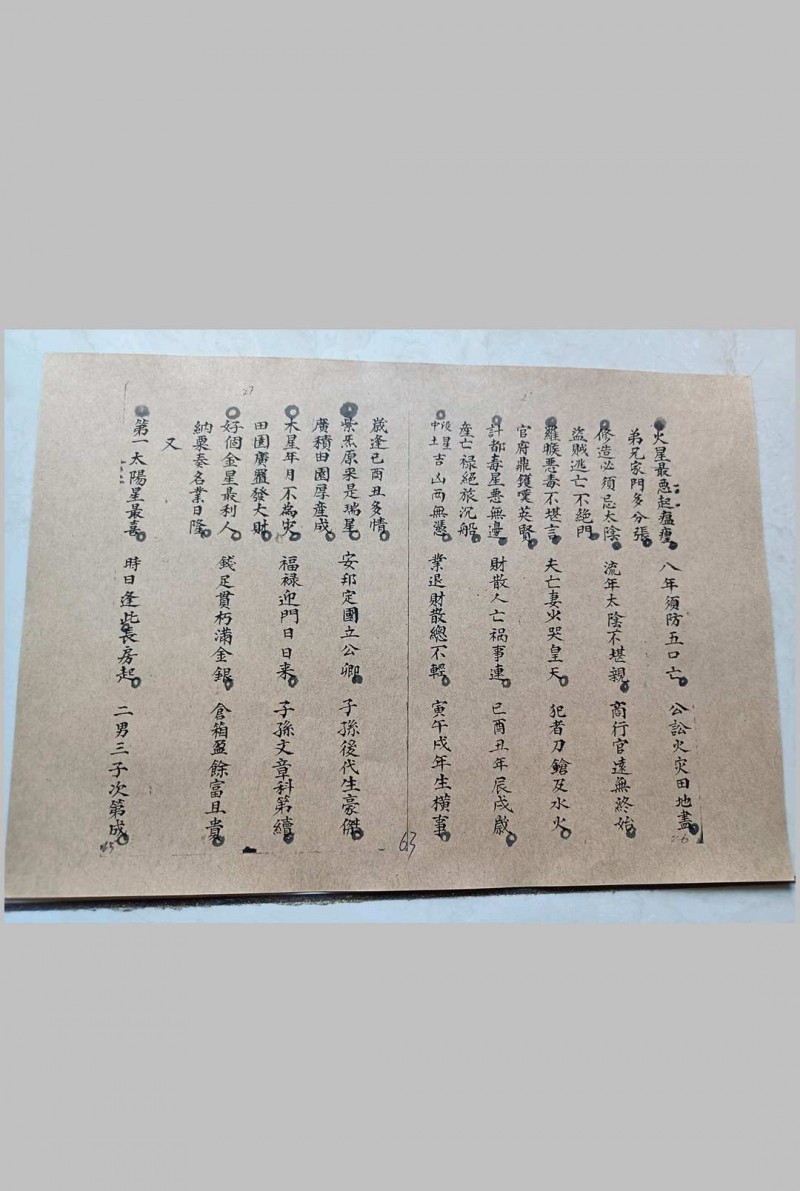 火星最惡起瘟瘟 八年須防五口亡 公訟火灾田地盡
弟兄家門多分張
修造必須忌太陰 流年太陰不堪親 商行官遠無終始
盜賊逃亡不絕門
羅睺惡毒不堪言 夫亡妻火哭皇天 犯者刀鎗及水火
官府鼎鑊喪英賢
計都毒星惡無邊 財散人亡禍事連 巳酉丑年辰戌歲
產亡禄絕旅沉船
中土 吉凶两無憑 業退財散總不輕 寅午戌年生横事
歲逢巳酉丑多情
紫炁原來是瑞星 安邦定國立公卿 子孫後代生豪傑
廣積田園厚產成
木星年月不為灾 福禄迎門日日來 子孫文章科第續
田園廣置發大財
好個金星最利人 錢足貫朽滿金銀 倉箱盈餘富且貴
納粟奏名業日隆
又
第一太陽星最喜 時日逢此長房起 二男三子次第成
63
27